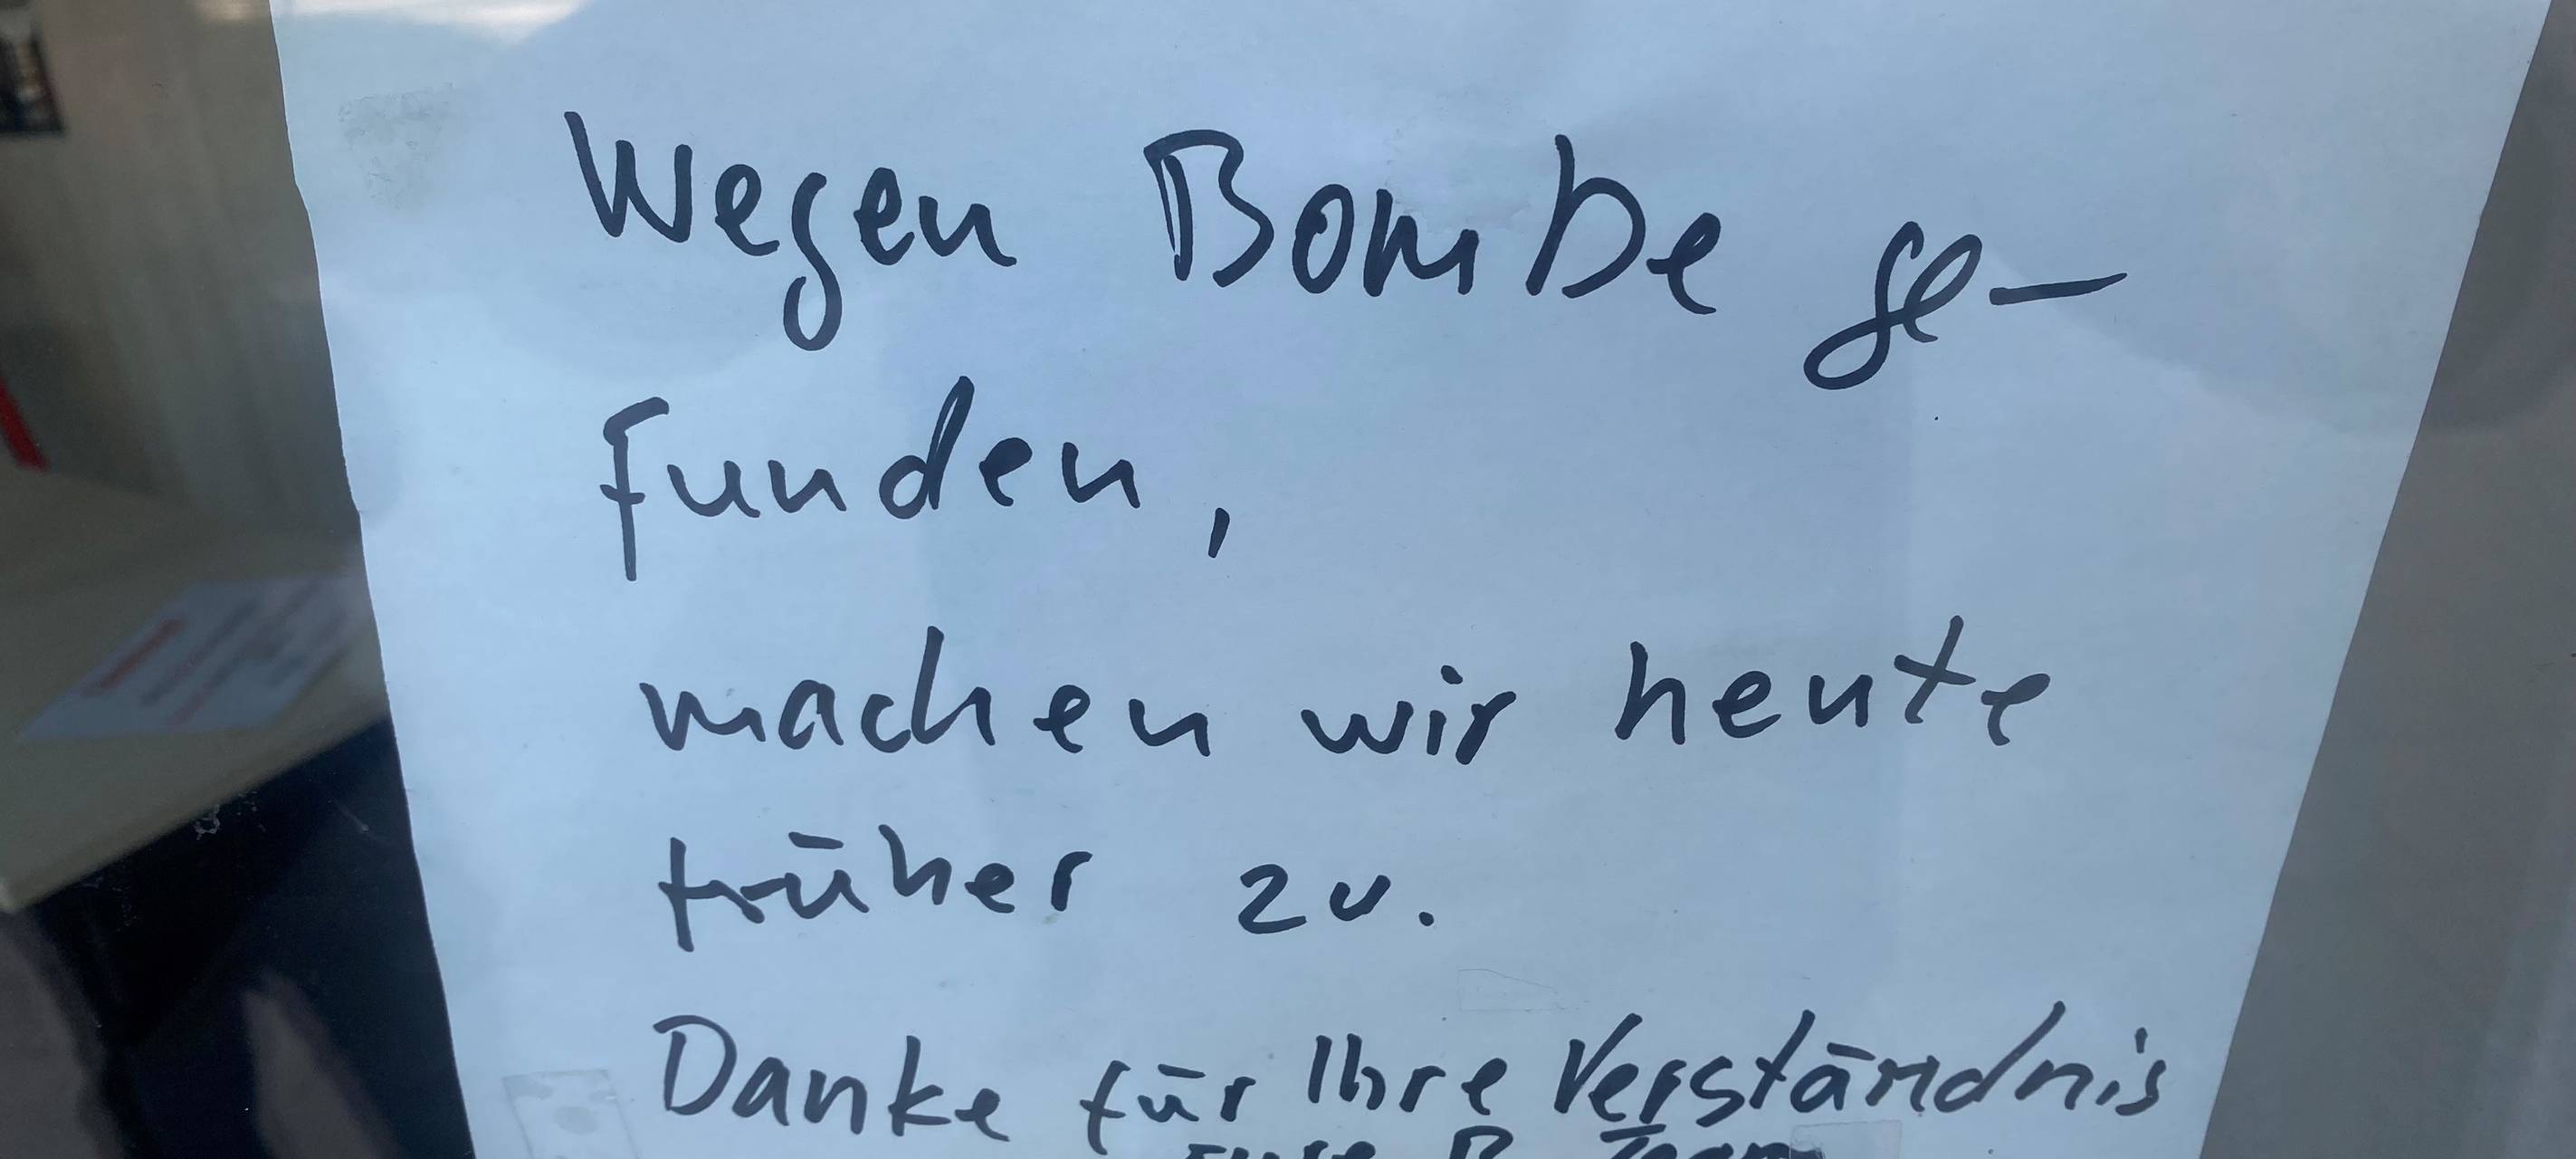 Wegen Bombe ge-
funden,
machen wir heute
früher zu.
Danke für Ihre Verständnis
Team